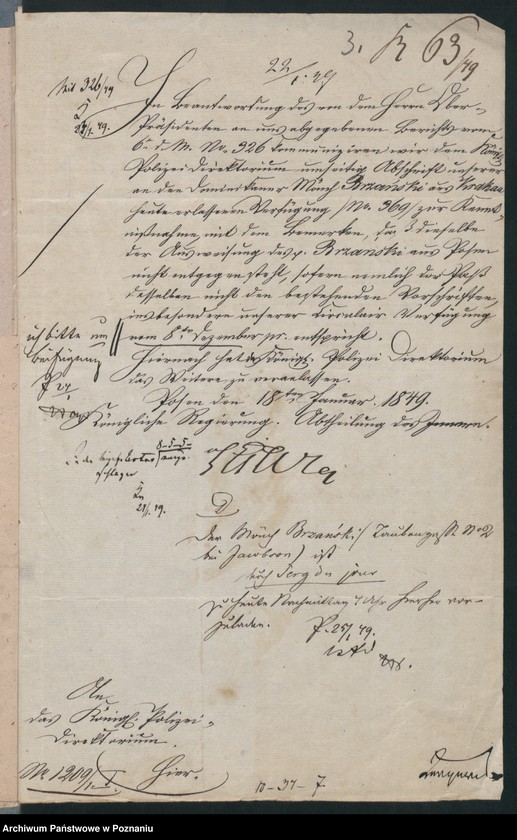 3. K 63/49
22/1. 49
326/49
22/1. 49.
In Beantwortung des von dem Herrn Ober-
Präsidenten an uns abgegebenen Berichts vom
6. d. M. No. 326 kommuniziren wir dem König.
Polizei Direktorium Abschrift unserer
an den Dominikaner Mönch Brzański aus Krakau
heute erlassenen Verfügung (No. 369) zur Kennt-
nißnahme, mit dem Bemerken, daß dieselbe
der Ausweisung des p. Brzański aus Posen
nicht entgegensteht, sofern nemlich der Paß
desselben nicht den bestehenden Vorschriften,
insbesondere unserer Circulair Verfügung
vom 8ten Dezember pr. entspricht.
Hiernach hat das Königl. Polizei Direktorium
das Weitere zu veranlassen.
Posen den 18ten Januar 1849.
Königliche Regierung. Abtheilung des Innern.
ich bitte um
Beifügung
P. 24/1
21/1. 49.
Der Mönch Brzański (Taubengasse No 2
bei Jacobson) ist
zu heute Nachmittag 4 Uhr hierher vor-
zuladen.
P. 25/1 49.
An
das Königl. Polizei-
Direktorium.
Hier.
No 1209/1. I.
10-37-7
Archiwum Państwowe w Poznaniu